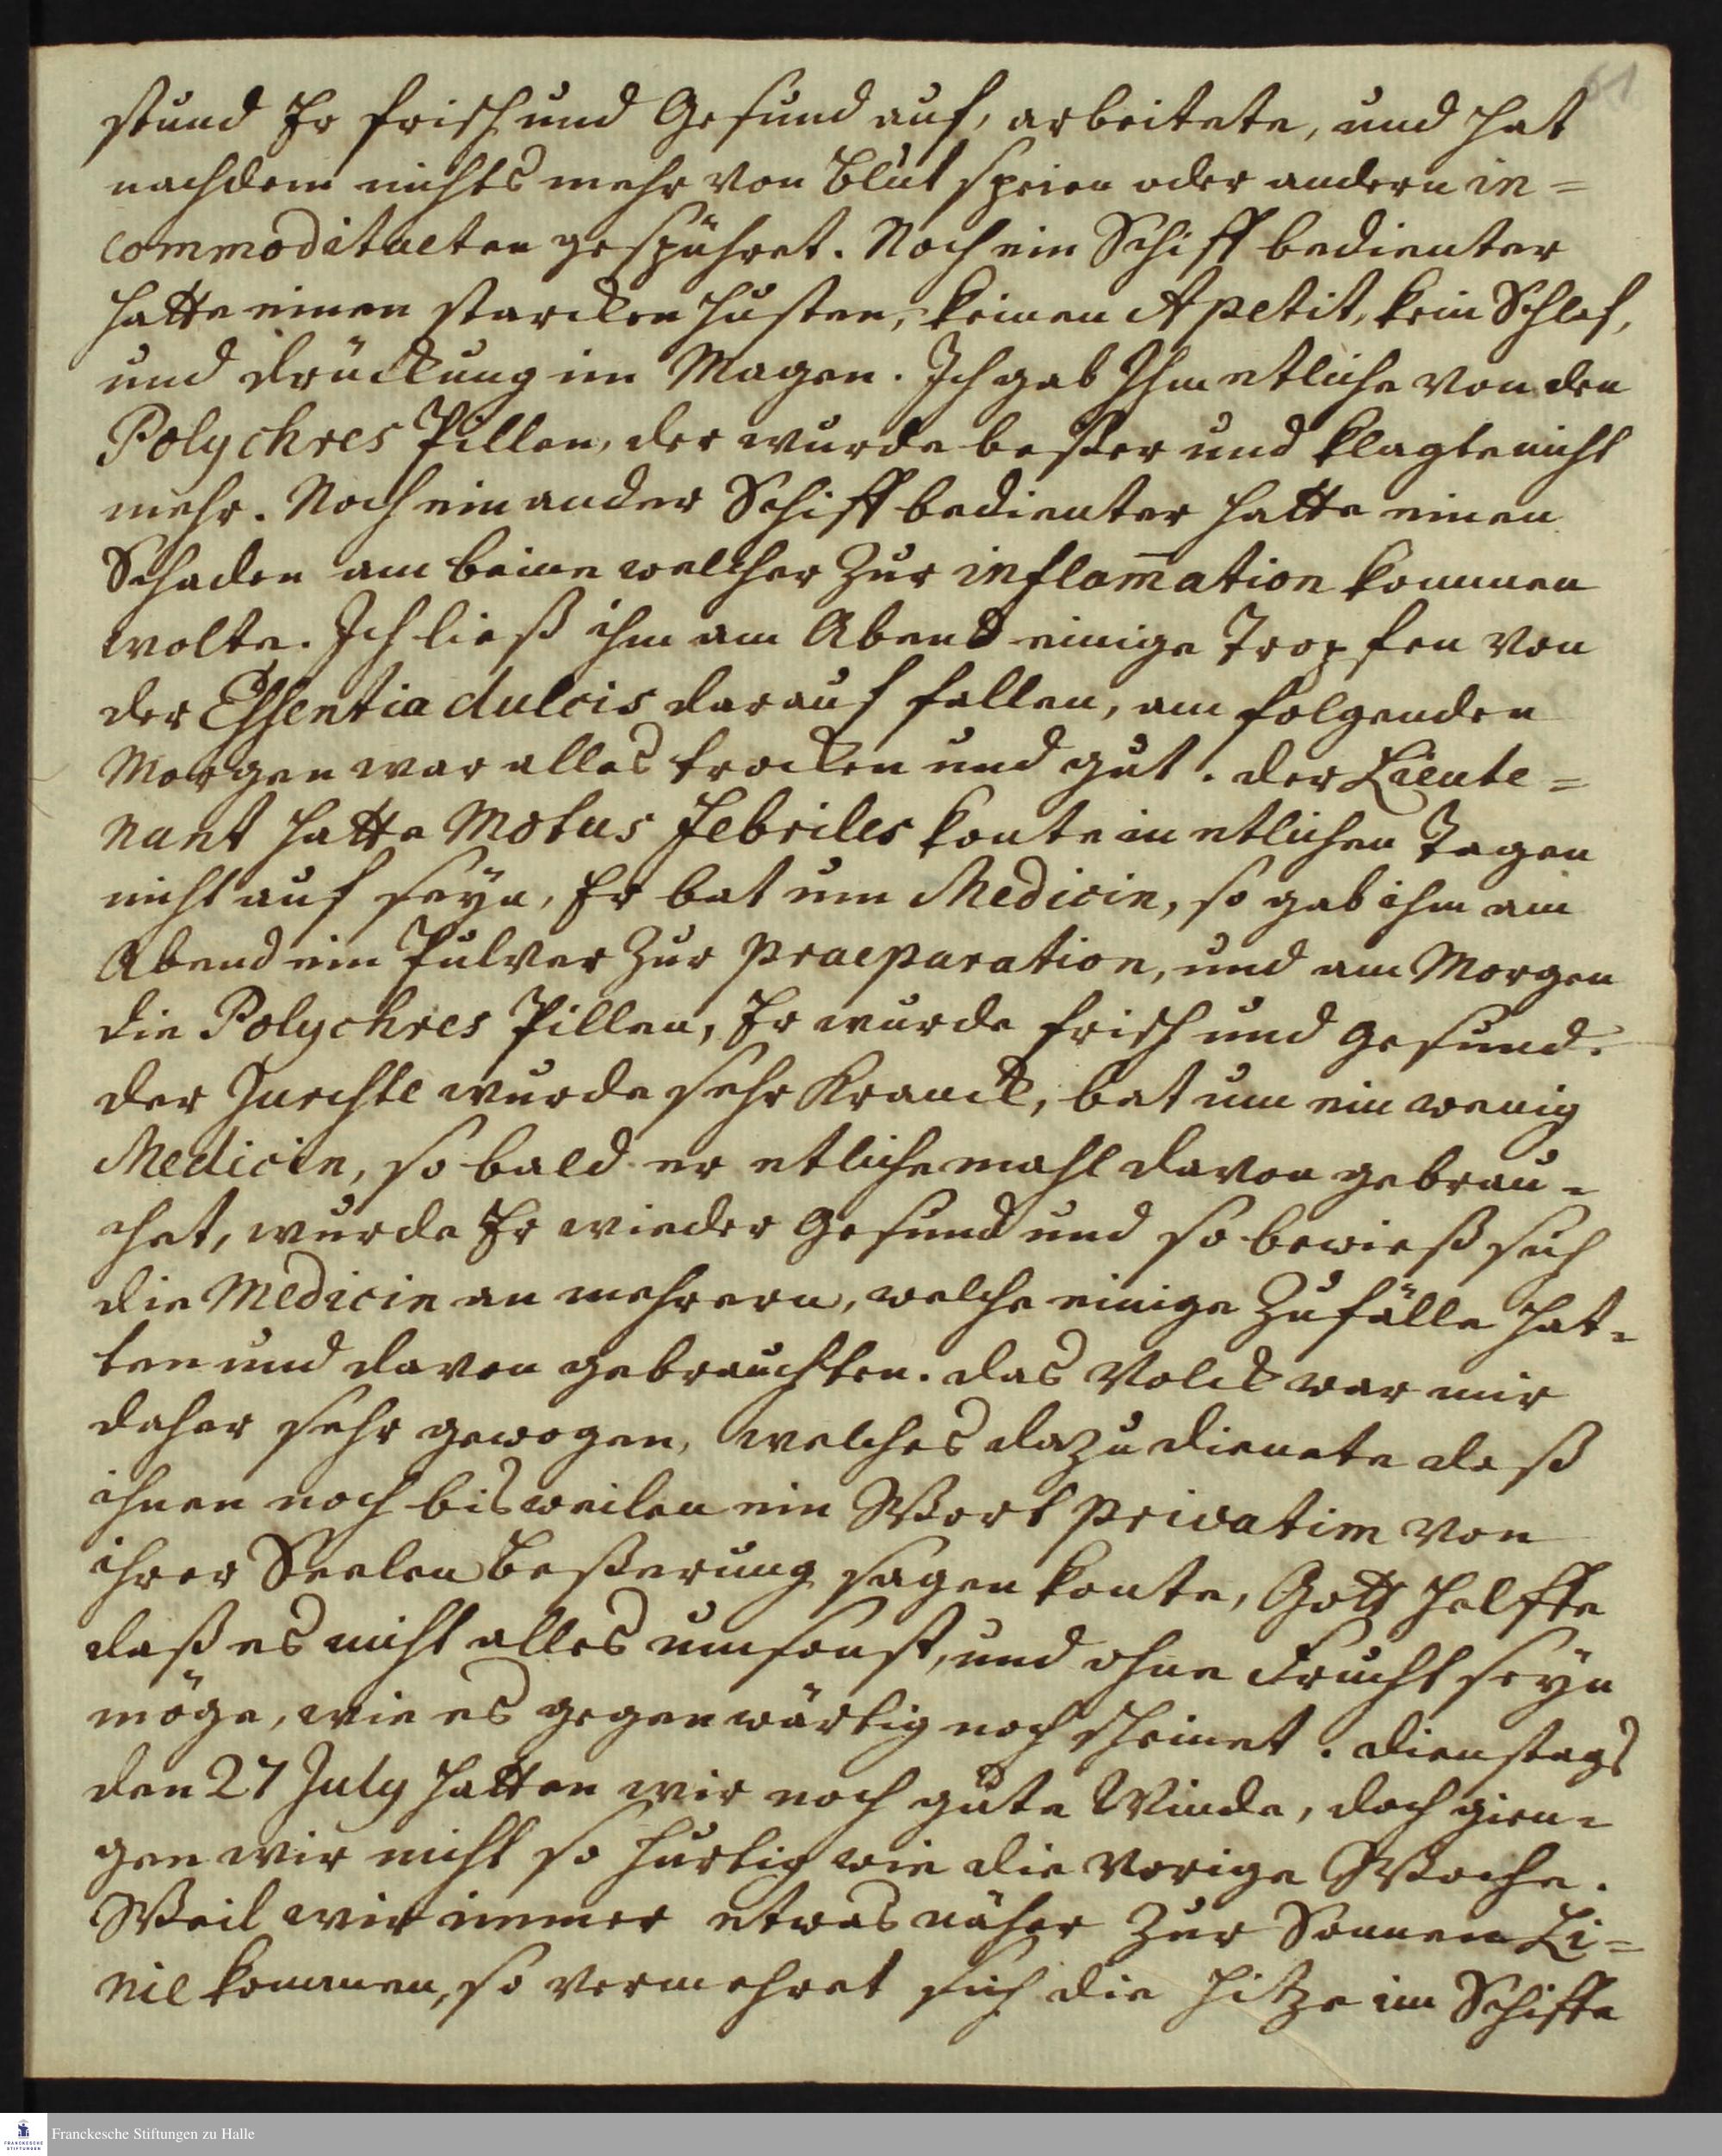 61
stund Er frisch und Gesund auf, arbeitete, und hat
nachdem nichts mehr von Blut speien oder andern in=
commoditaeten gespühret. Noch ein Schiff bedienter
hatte einen starcken Husten, keinen Apetit, kein Schlaf,
und drückung im Magen. Ich gab Ihm etliche von den
Polychres Pillen, der wurde beßer und klagte nicht
mehr. Noch ein ander Schiff bedienter hatte einen
Schaden am beine welcher Zur inflam̄ation kommen
wolte. Ich ließ ihm am Abend einige Tropfen von
der Essentia dulcis darauf fallen, am folgenden
Morgen war alles trocken und gut. der Lieute=
nant hatte Motus febriles konte in etlichen Tagen
nicht auf seyn, Er bat um Medicin, so gab ihm am
Abend ein Pulver Zur praeparation, und am Morgen
die Polychres Pillen, Er wurde frisch und gesund.
der wurde sehr Kranck, bat um ein wenig
Medicin, so bald er etliche mahl davon gebrau=
chet, wurde Er wieder gesund und so bewieß sich
die Medicin an mehrern, welche einige Zufälle hat=
ten und davon gebrauchten. das Volck war mir
daher sehr gewogen, welches dazu dienete daß
ihnen noch bisweilen ein Wort privatim von
ihrer Seelen Beßerung sagen konte, Gott helffe
daß es nicht alles umsonst, und ohne Frucht seyn
möge, wie es gegenwärtig noch scheinet. Dienstags
den 27 July hatten wir noch gute Winde, doch gien=
gen wir nicht so hurtig wie die vorige Woche.
Weil wir immer etwas näher zur Sonnen Li=
nie kommen, so vermehret sich die Hitze im Schiffe
Franckesche Stiftungen zu Halle
FRANCKESCHE
STIFTUNGEN